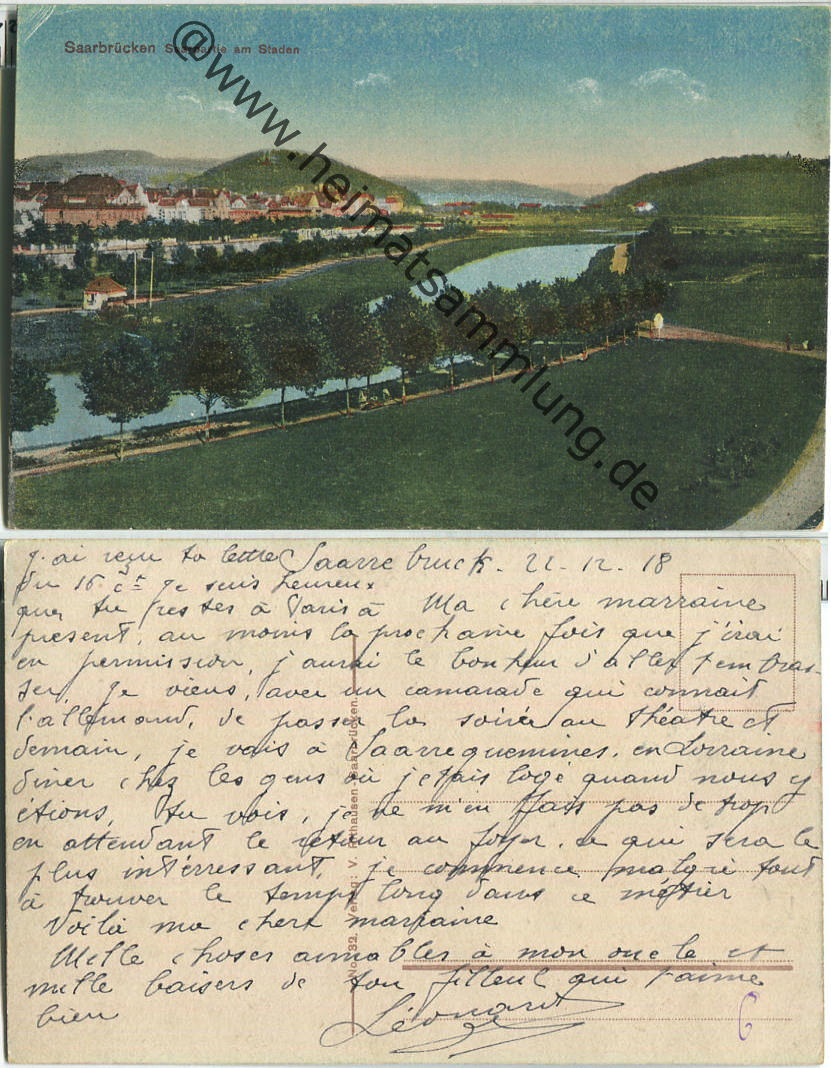 Saarbrücken Saarpartie am Staden
@www.heimatsammlung.de
J'ai reçu ta lettre
du 16 ct Je suis heureux
que tu restes à Paris à
Saarrebruck. 22-12-18
Ma chère marraine
présent, au moins la prochaine fois que j'irai
en permission, j'aurai le bonheur d'aller t'embras-
ser. Je viens, avec un camarade qui connait
l'allemand, de passer la soirée au théatre et
demain, je vais à Saarreguemines, en Lorraine
diner chez les gens où j'étais logé quand nous y
étions, tu vois, je ne m'en fais pas de trop
en attendant le retour au foyer, ce qui sera le
plus intérressant, je commence malgré tout
à trouver le temps long dans ce métier
Voilà ma chère marraine
Mille choses aimables à mon oncle et
mille baisers de ton filleul qui t'aime
bien
Léonard
No. 32. Verlag: V. Saarbrücken.
6